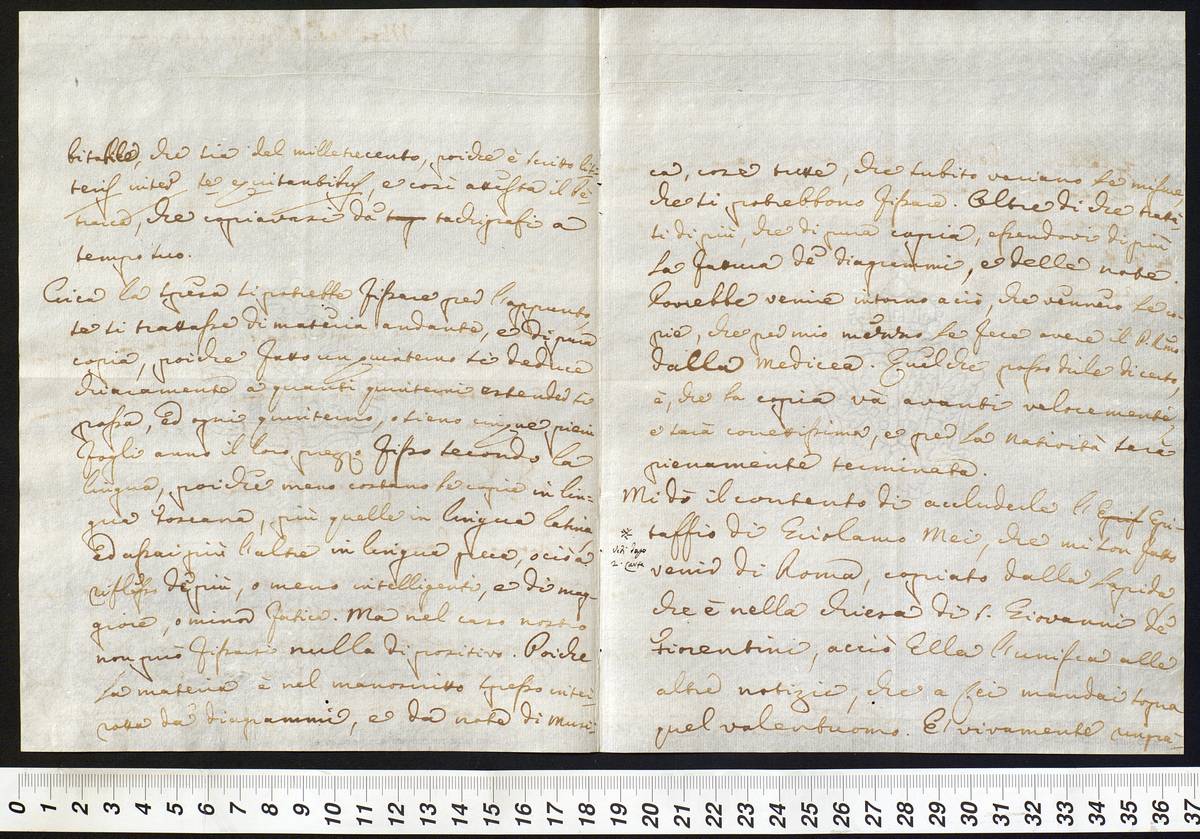 bitabile, che sia del milletrecento, poiche è scrito lit-
teris inter se equitantibus, e così attesta il Pe-
trarca, che copiavasi da tachigrafi a
tempo suo.
Circa la spesa si potrebbe fissare per l'appunto,
se si trattasse di materia andante, e di pura
copia, poiche fatto un quinterno si deduce
chiaramente a quanti quinterni estender si
possa, Ed ogni quinterno, o sieno cinque pieni
fogli anno il loro prezzo fisso secondo la
lingua, poiche meno costano le copie in lin-
gua Toscana, più quelle in lingua latina
Ed assai più l'altre in lingua greca, o ciò a
riflesso de più, o meno intelligenti, e di mag-
giore, o minor fatica. Ma nel caso nostro
non può fissarsi nulla di positivo. Poiche
la materia è nel manoscritto spesso inter-
rotta da diagrammi, e da note di musi-
ca, cose tutte, che subito variano le misure,
che si potrebbono fissare. Oltre di che tratta-
si di più, che di pura copia, essendovi di più
la fattura de diagrammi, e delle note.
Dovrebbe venire intorno a ciò, che vennero le co-
pie, che per mio mezzo le fece avere il P. Rmo
dalla Medicea. Quel che posso dirle di certo,
è, che la copia và avanti velocemente,
e sarà correttissima, e per la Natività sarà
pienamente terminata.
Mi dò il contento di accluderle l'Epi-
taffio di Girolamo Mei, che mi son fatto
venir di Roma, copiato dalla lapida
che è nella chiesa di S. Giovanni de
Fiorentini, acciò Ella l'unisca alle
altre notizie, che a Lei mandai sopra
quel valentuomo. E vivamente
※
vedi dopo
2. carte